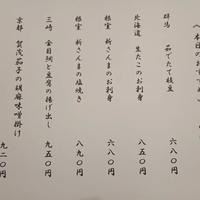 本日のおすすめ
群馬 茹でたて枝豆 六八〇円
北海道 生たこのお刺身 八五〇円
根室 新さんまのお刺身 六八〇円
根室 新さんまの塩焼き 八九〇円
三崎 金目鯛と豆腐の揚げ出し 九五〇円
京都 賀茂茄子の胡麻味噌掛け 九二〇円